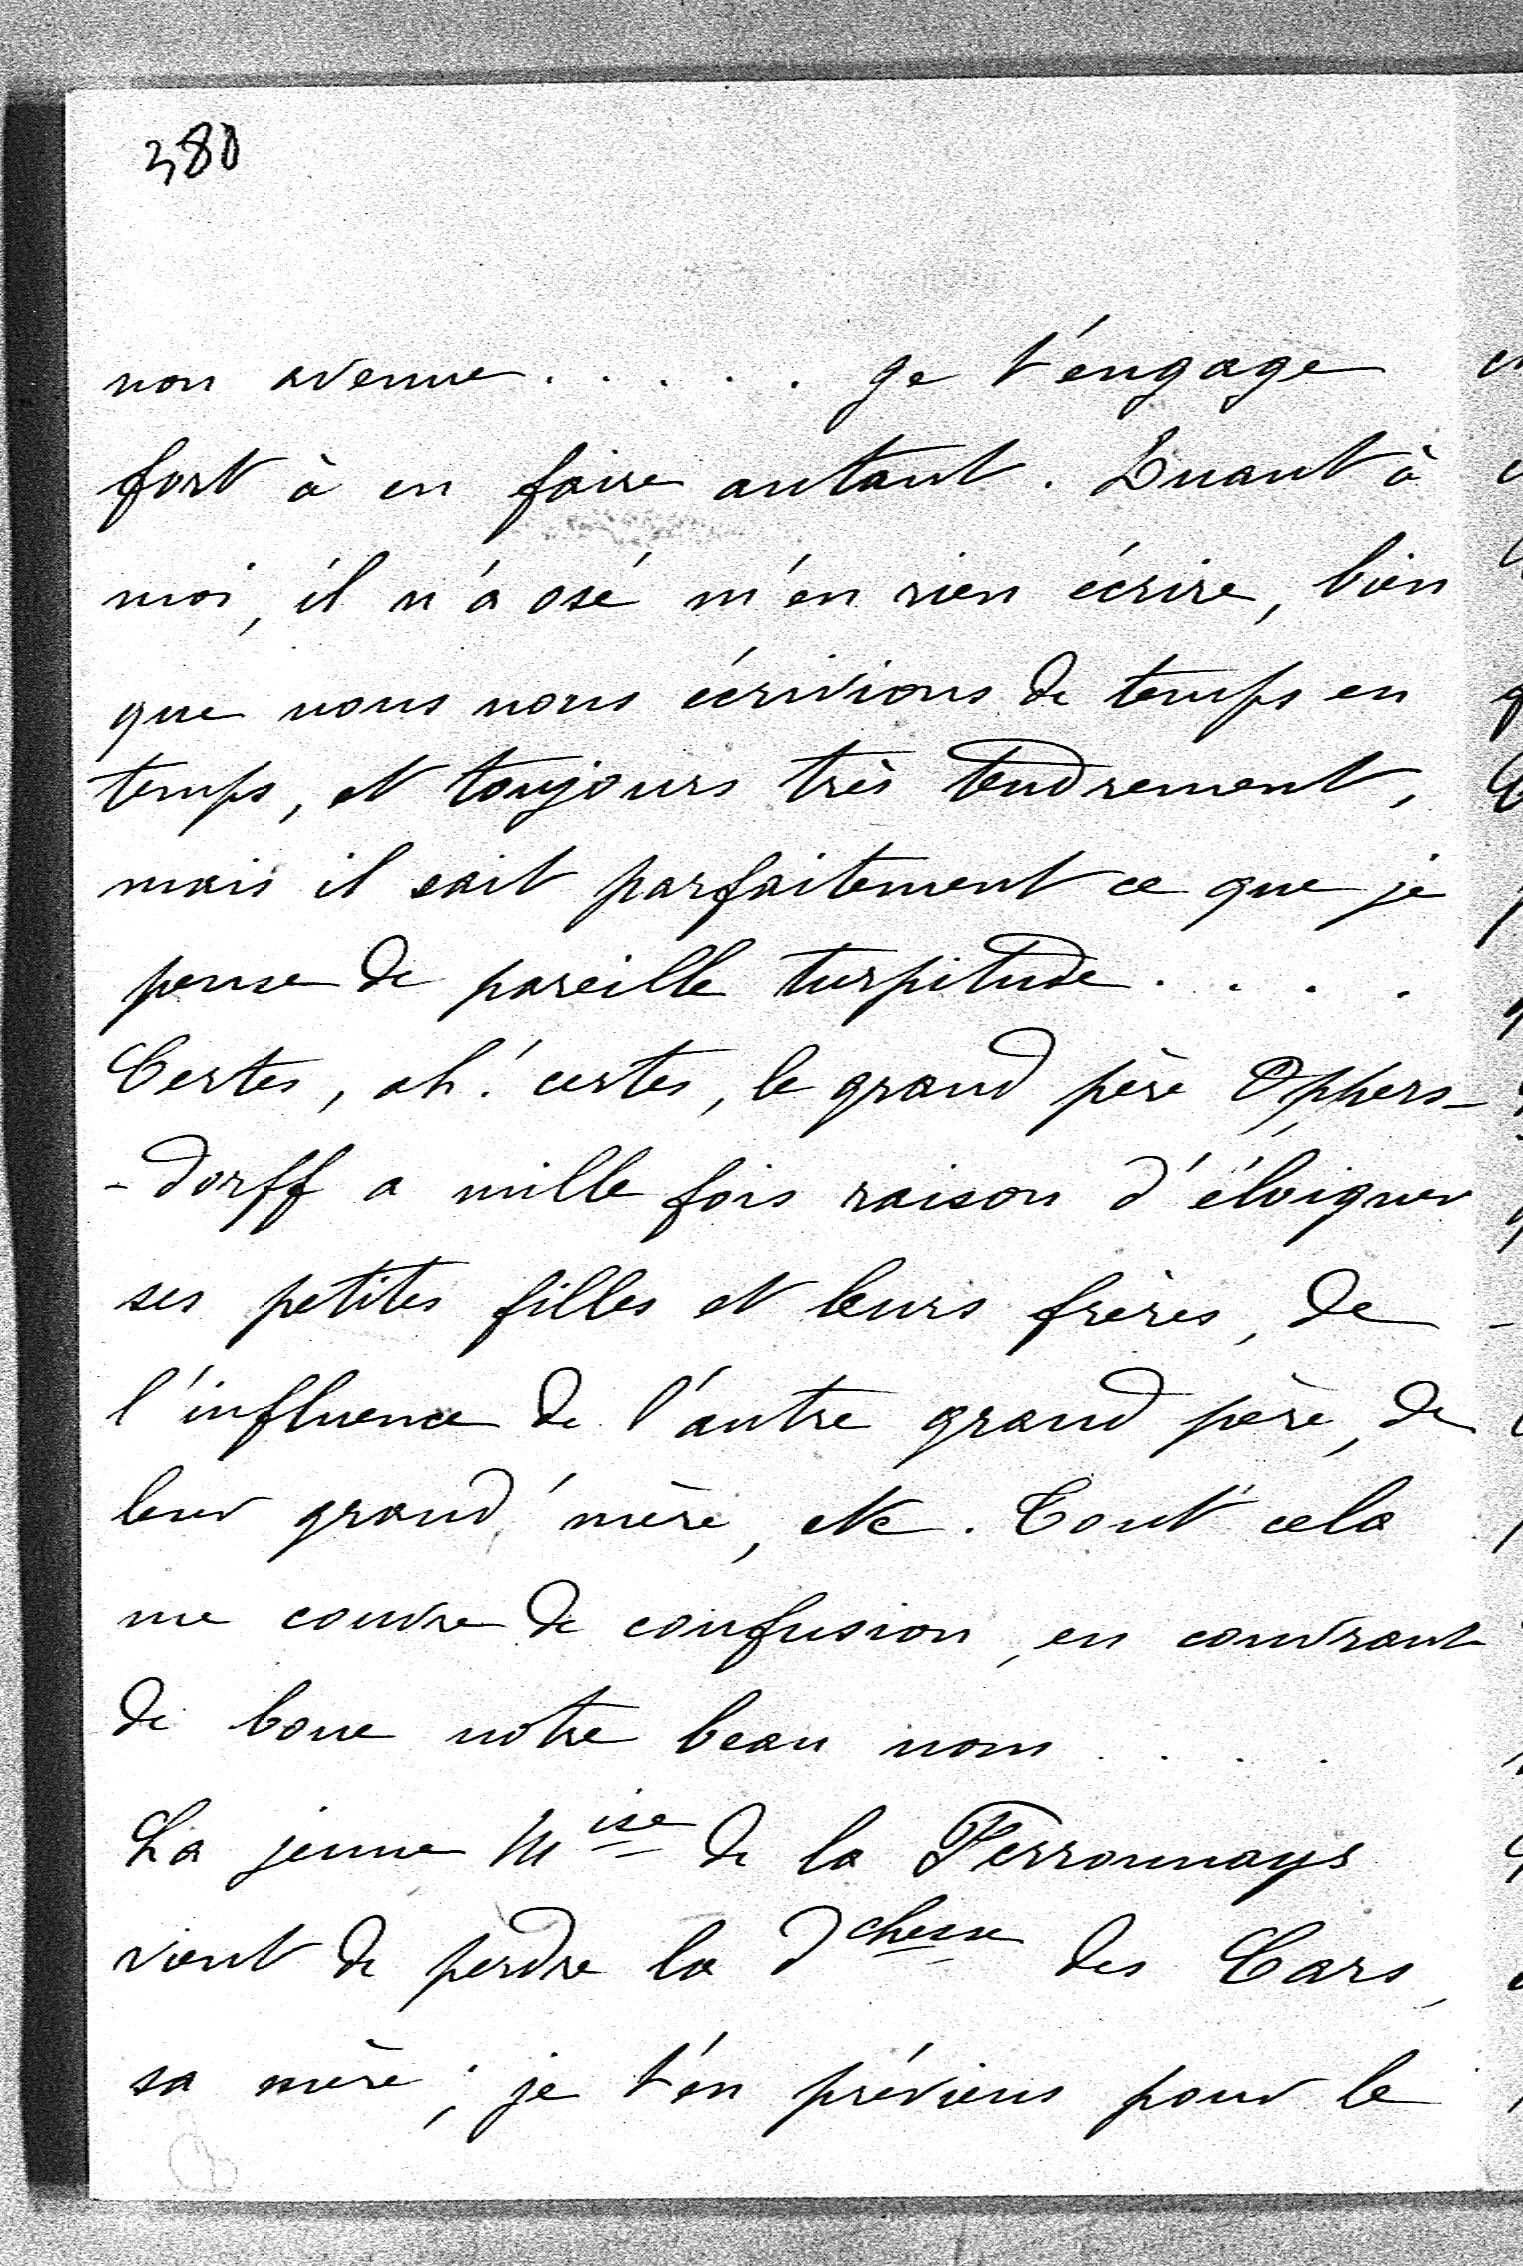 380
non avenue . . . . . Je t'engage
fort à en faire autant. Quant à
moi, il n'a osé m'en rien écrire, bien
que nous nous écrivions de temps en
temps, et toujours très tendrement,
mais il sait parfaitement ce que je
pense de pareille turpitude . . . .
Certes, ah! certes, le grand père Oppers-
-dorff a mille fois raison d'éloigner
ses petites filles et leurs frères, de
l'influence de l'autre grand père, de
leur grand'mère, etc. Tout cela
me couvre de confusion, en couvrant
de boue notre beau nom . . . .
La jeune Mise de la Ferronnays
vient de perdre la dchesse des Cars,
sa mère; je t'en préviens pour le